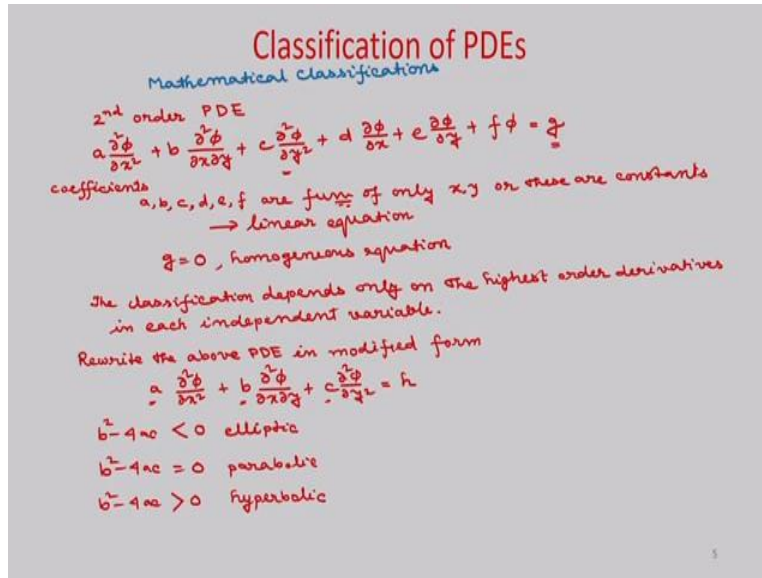 Classification of PDEs
Mathematical classifications
2nd order PDE
a ∂²φ/∂x² + b ∂²φ/∂x∂y + c ∂²φ/∂y² + d ∂φ/∂x + e ∂φ/∂y + f φ = g
coefficients a, b, c, d, e, f are funⁿ of only x, y or these are constants
→ linear equation
g = 0, homogeneous equation
The classification depends only on the highest order derivatives
in each independent variable.
Rewrite the above PDE in modified form
a ∂²φ/∂x² + b ∂²φ/∂x∂y + c ∂²φ/∂y² = h
b² - 4ac < 0 elliptic
b² - 4ac = 0 parabolic
b² - 4ac > 0 hyperbolic
5